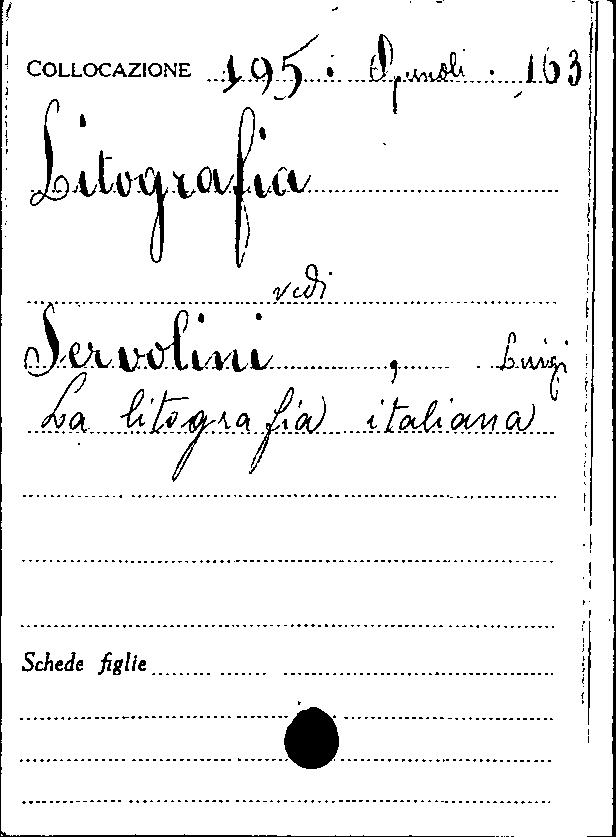 COLLOCAZIONE 195. Opuscoli. 163
Litografia
vedi
Servolini, Luigi
La litografia italiana
Schede figlie